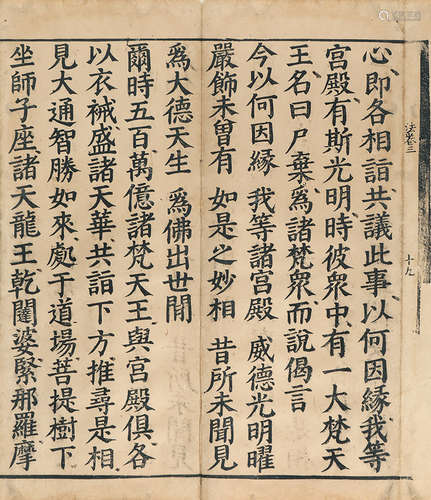 法卷三
十九
心即各相詣共議此事以何因緣我等
宮殿有斯光明時彼衆中有一大梵天
王名曰尸棄爲諸梵衆而說偈言
今以何因緣 我等諸宮殿 威德光明曜
嚴飾未曽有 如是之妙相 昔所未聞見
爲大德天生 爲佛出世間
爾時五百萬億諸梵天王與宮殿俱各
以衣裓盛諸天華共詣下方推尋是相
見大通智勝如來處于道場菩提樹下
坐師子座諸天龍王乾闥婆緊那羅摩